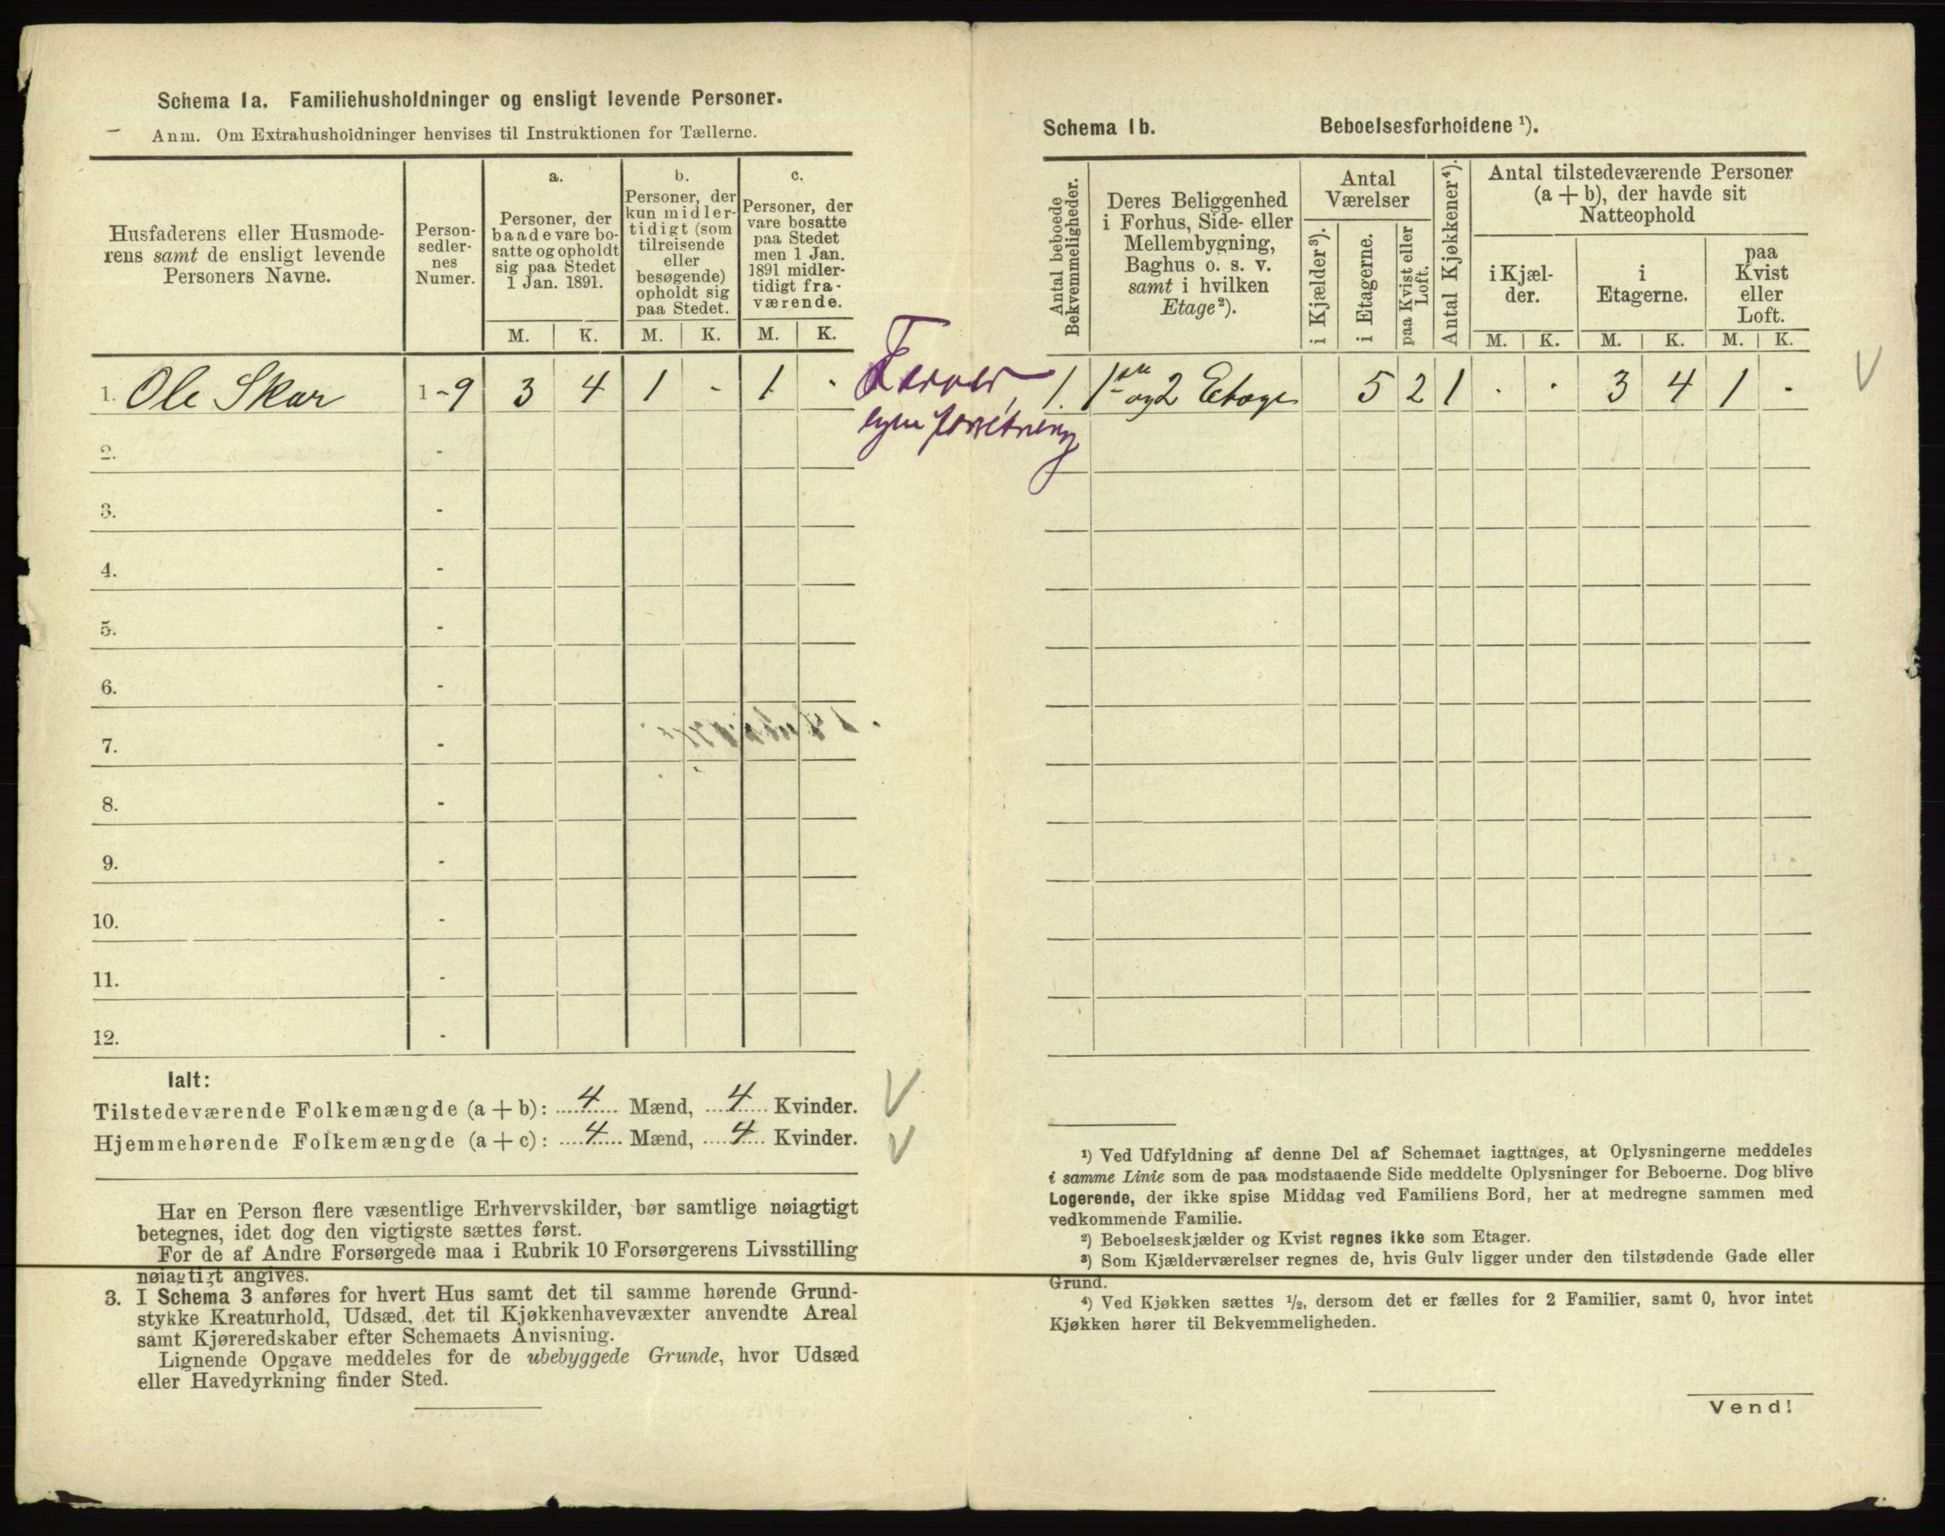 Schema 1a. Familiehusholdninger og ensligt levende Personer.
Anm. Om Extrahusholdninger henvises til Instruktionen for Tællerne.
Husfaderens eller Husmode-
rens samt de ensligt levende
Personers Navne.
Person-
sedler-
nes
Numer.
a.
Personer, der
baade vare bo-
satte og opholdt
sig paa Stedet
1 Jan. 1891.
b.
Personer, der
kun midler-
tidigt (som
tilreisende
eller
besøgende)
opholdt sig
paa Stedet.
c.
Personer, der
vare bosatte
paa Stedet
men 1 Jan.
1891 midler-
tidigt fra-
værende.
M. K. M. K. M. K.
1. Ole Skar 1 - 9 3 4 1 - 1 .
2. -
3. -
4. -
5. -
6. -
7. -
8. -
9. -
10. -
11. -
12. -
Ialt:
Tilstedeværende Folkemængde (a + b): 4 Mænd, 4 Kvinder.
Hjemmehørende Folkemængde (a + c): 4 Mænd, 4 Kvinder.
Har en Person flere væsentlige Erhvervskilder, bør samtlige nøiagtigt
betegnes, idet dog den vigtigste sættes først.
For de af Andre Forsørgede maa i Rubrik 10 Forsørgerens Livsstilling
nøiagtigt angives.
3. I Schema 3 anføres for hvert Hus samt det til samme hørende Grund-
stykke Kreaturhold, Udsæd, det til Kjøkkenhavevæxter anvendte Areal
samt Kjøreredskaber efter Schemaets Anvisning.
Lignende Opgave meddeles for de ubebyggede Grunde, hvor Udsæd
eller Havedyrkning finder Sted.
egen forretning
Schema 1b. Beboelsesforholdene ¹).
Antal beboede
Bekvemmeligheder.
Deres Beliggenhed
i Forhus, Side- eller
Mellembygning,
Baghus o. s. v.
samt i hvilken
Etage²).
Antal
Værelser
i Kjælder³).
i Etagerne.
paa Kvist eller
Loft.
Antal Kjøkkener⁴).
Antal tilstedeværende Personer
(a + b), der havde sit
Natteophold
i Kjæl-
der.
i
Etagerne.
paa
Kvist
eller
Loft.
M. K. M. K. M. K.
1. 1ste og 2 Etage 5 2 1 . . 3 4 1 -
¹) Ved Udfyldning af denne Del af Schemaet iagttages, at Oplysningerne meddeles
i samme Linie som de paa modstaaende Side meddelte Oplysninger for Beboerne. Dog blive
Logerende, der ikke spise Middag ved Familiens Bord, her at medregne sammen med
vedkommende Familie.
²) Beboelseskjælder og Kvist regnes ikke som Etager.
³) Som Kjælderværelser regnes de, hvis Gulv ligger under den tilstødende Gade eller
Grund.
⁴) Ved Kjøkken sættes ½, dersom det er fælles for 2 Familier, samt 0, hvor intet
Kjøkken hører til Bekvemmeligheden.
Vend!